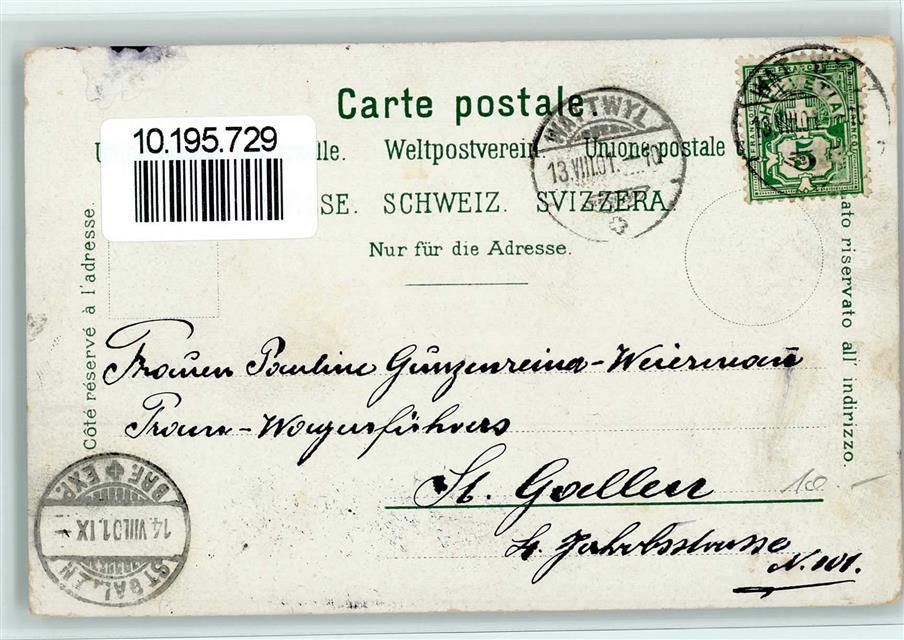 Carte postale.
10.195.729
lle. Weltpostverein. Unione postale
SE. SCHWEIZ. SVIZZERA.
Nur für die Adresse.
WATTWYL
13.VIII.01. – 10
HELVETIA
5
Côté réservé à l'adresse.
ato riservato all' indirizzo.
Frauen Pauline Gunzenreina-Weiermann
Tram-Wagenführers
St. Gallen
St. Jakobsstrasse
N. 101.
10 –
ST. GALLEN
14.VIII.01. IX
BRF. EXP.